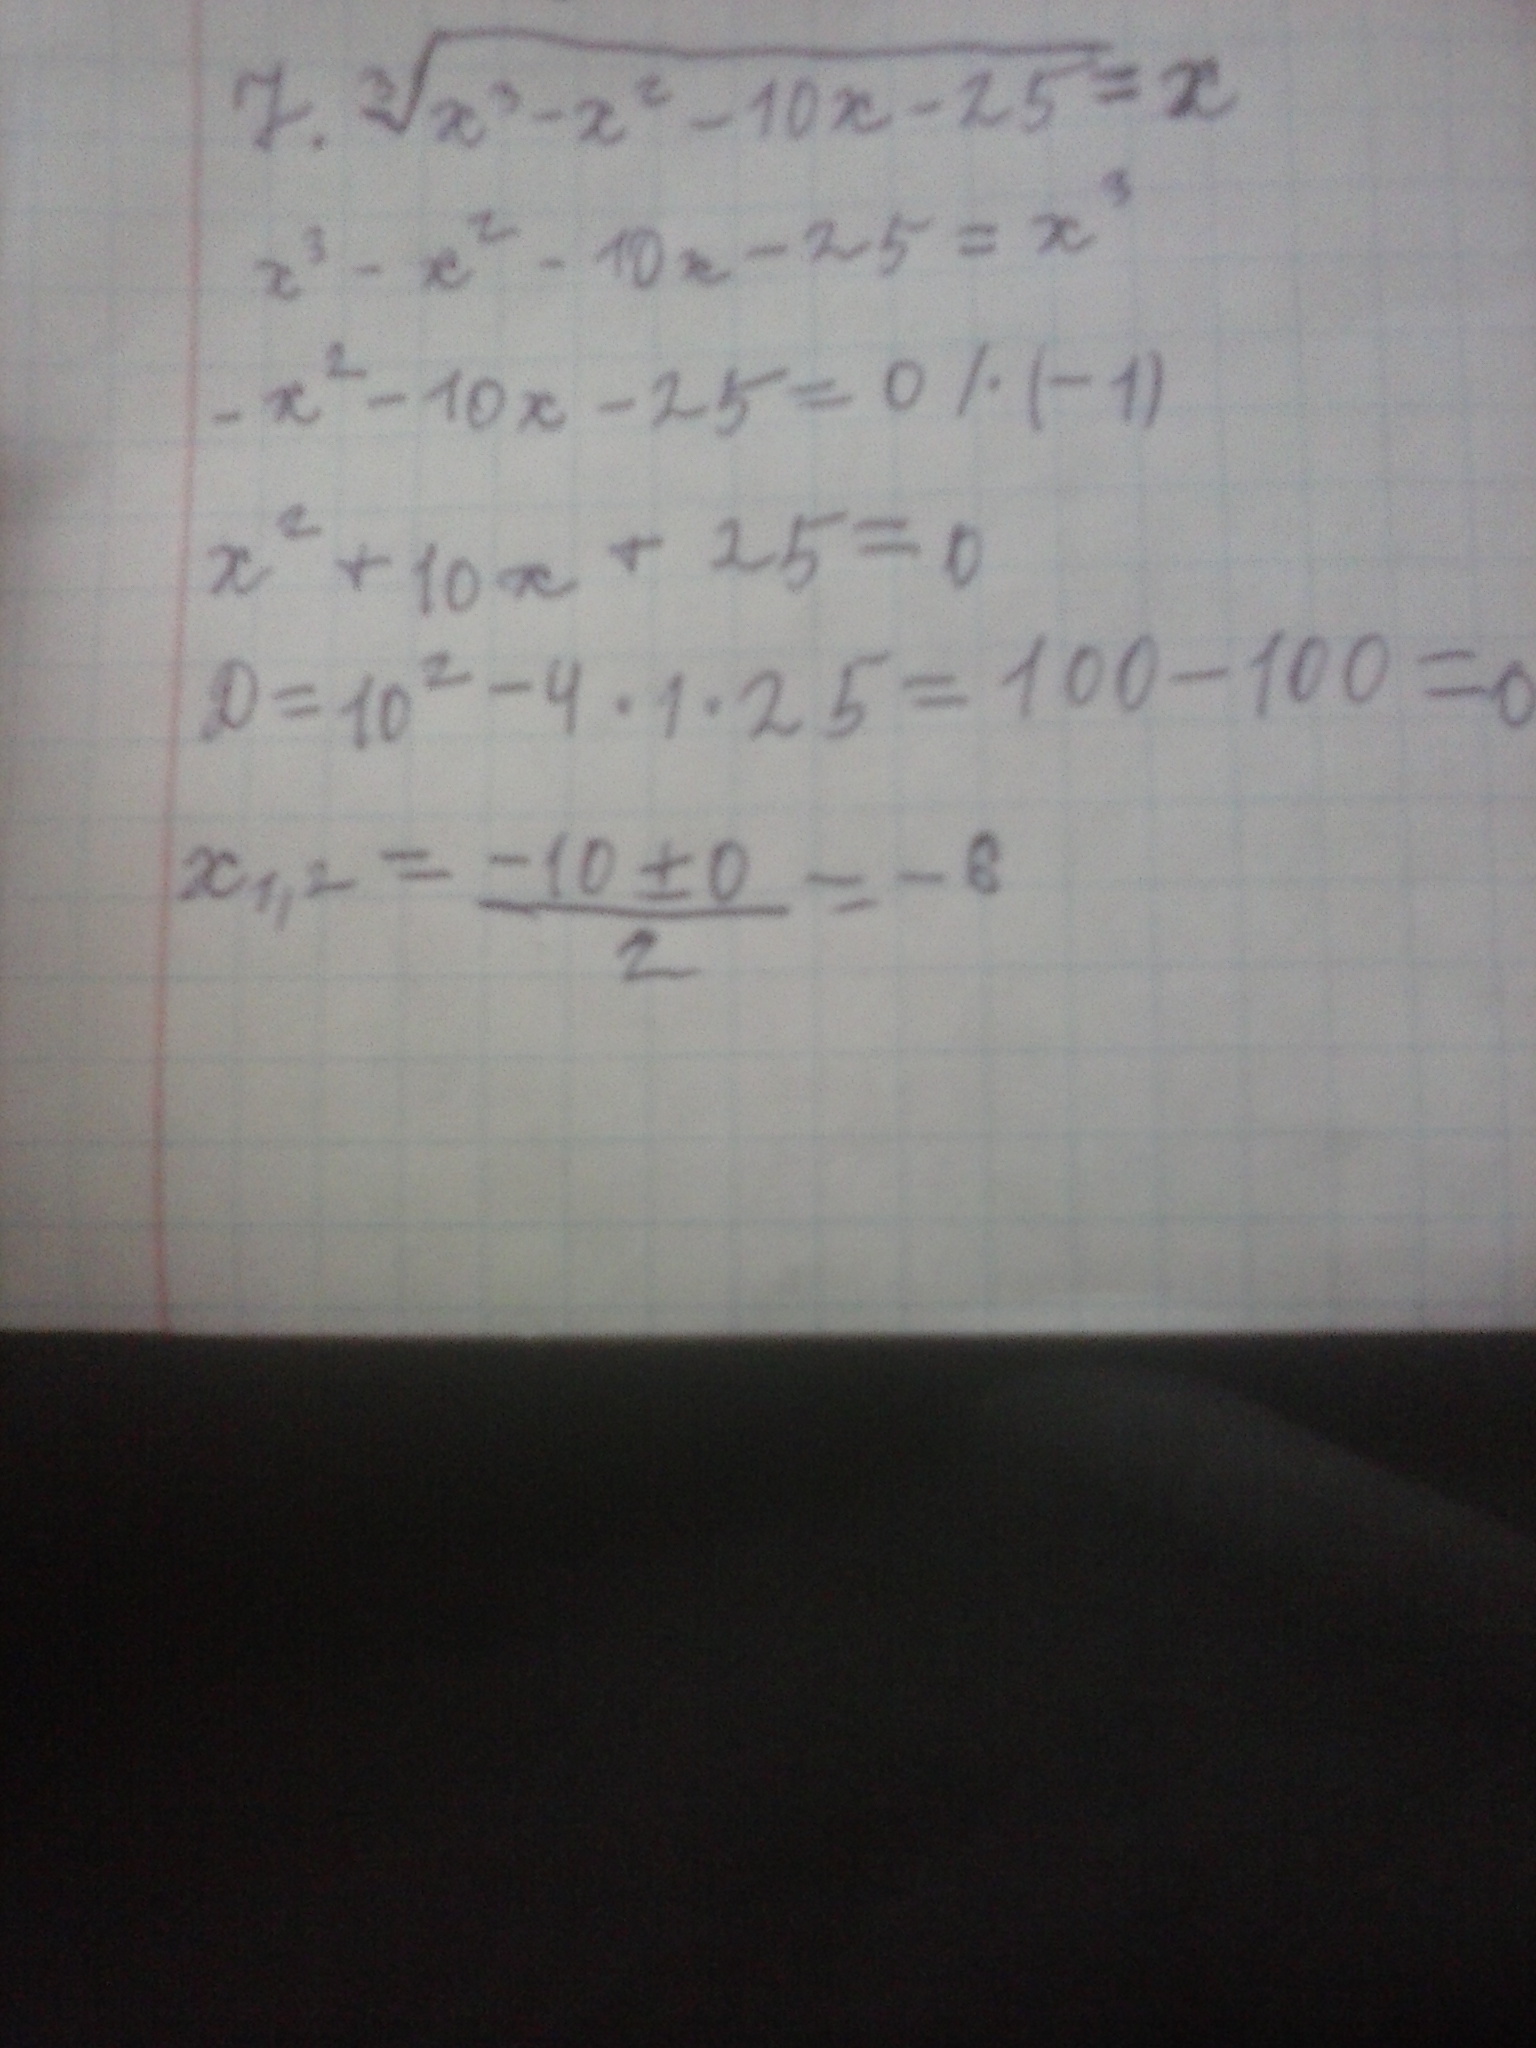 7. ∛(x³ - x² - 10x - 25) = x
x³ - x² - 10x - 25 = x³
-x² - 10x - 25 = 0 /·(-1)
x² + 10x + 25 = 0
D = 10² - 4·1·25 = 100 - 100 = 0
x₁,₂ = (-10 ± 0)/2 = -